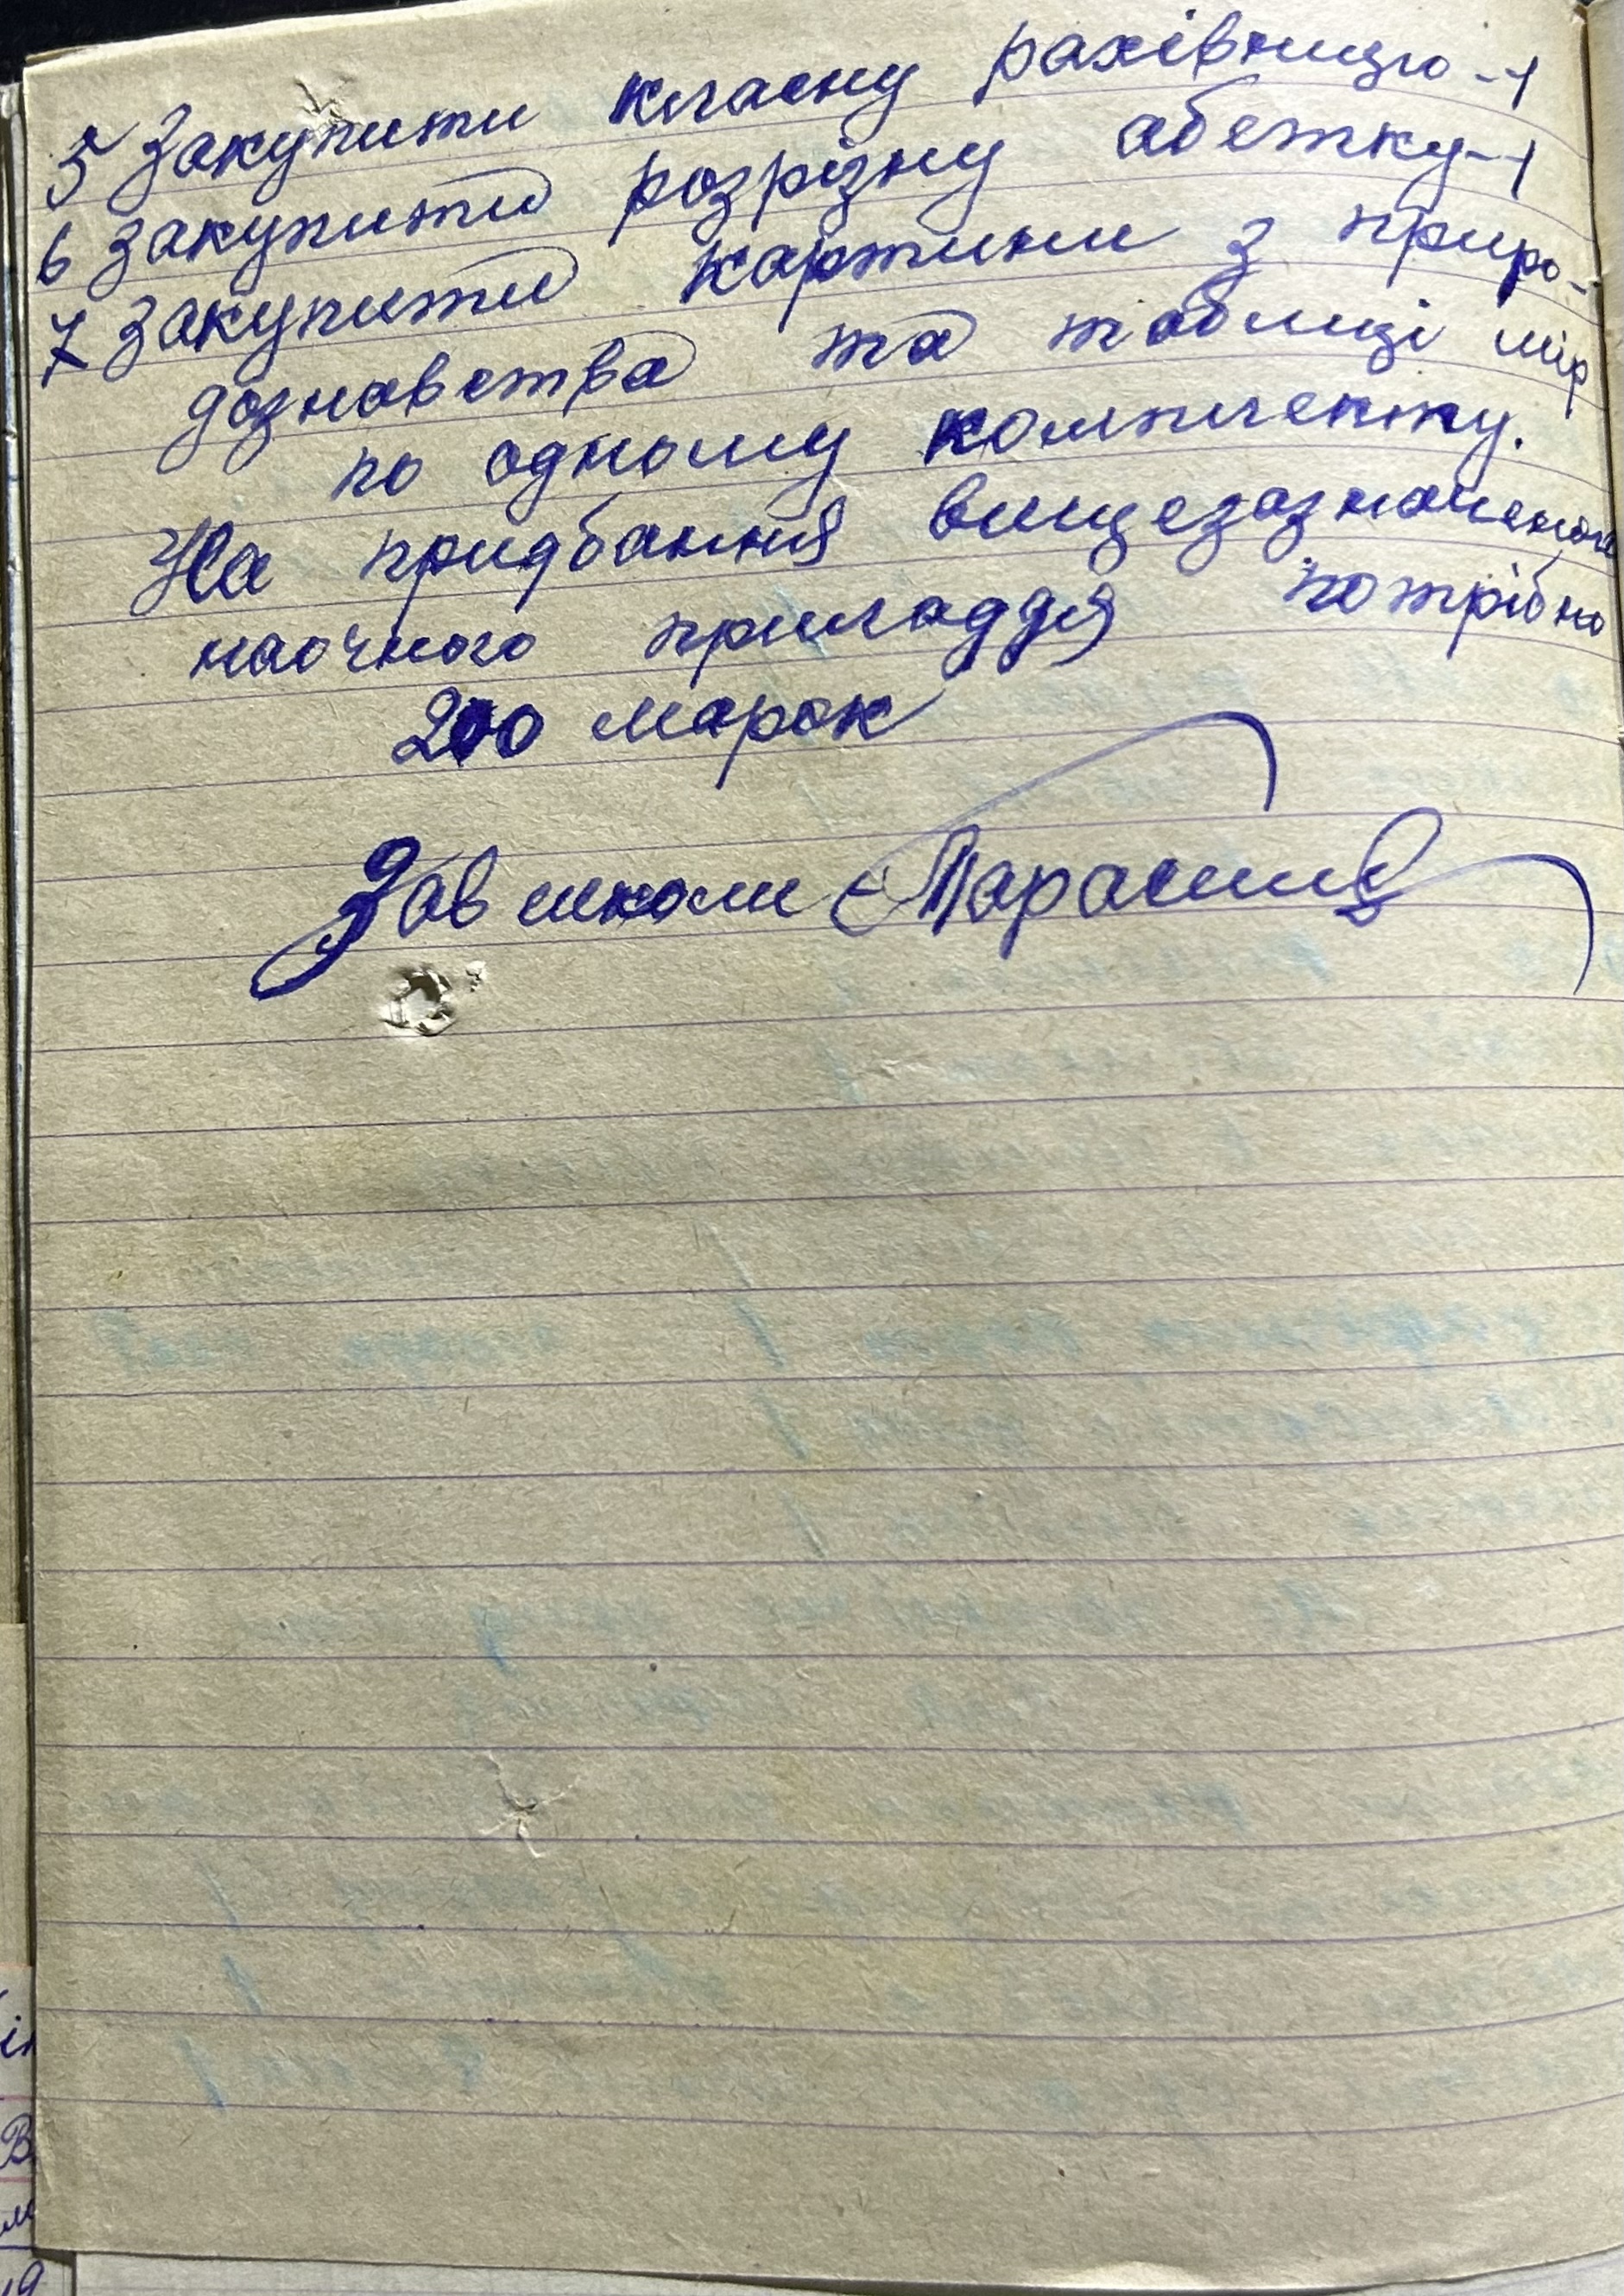 5 Закупити класну рахівницю -1
6 Закупити розрізну абетку -1
7 Закупити картини з приро-
дознавства та таблиці мір
по одному комплекту.
На придбання вищезазначеного
наочного приладдя потрібно
200 марок
Зав школи